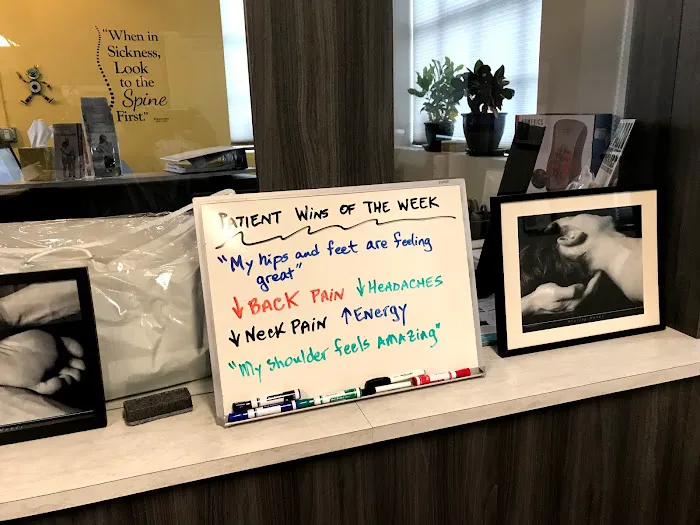 "When in
Sickness,
Look
to the
Spine
First."
PATIENT WINS OF THE WEEK
"My hips and feet are feeling
great"
↓BACK PAIN ↓HEADACHES
↓NECK PAIN ↑ENERGY
"My shoulder feels AMAZING"